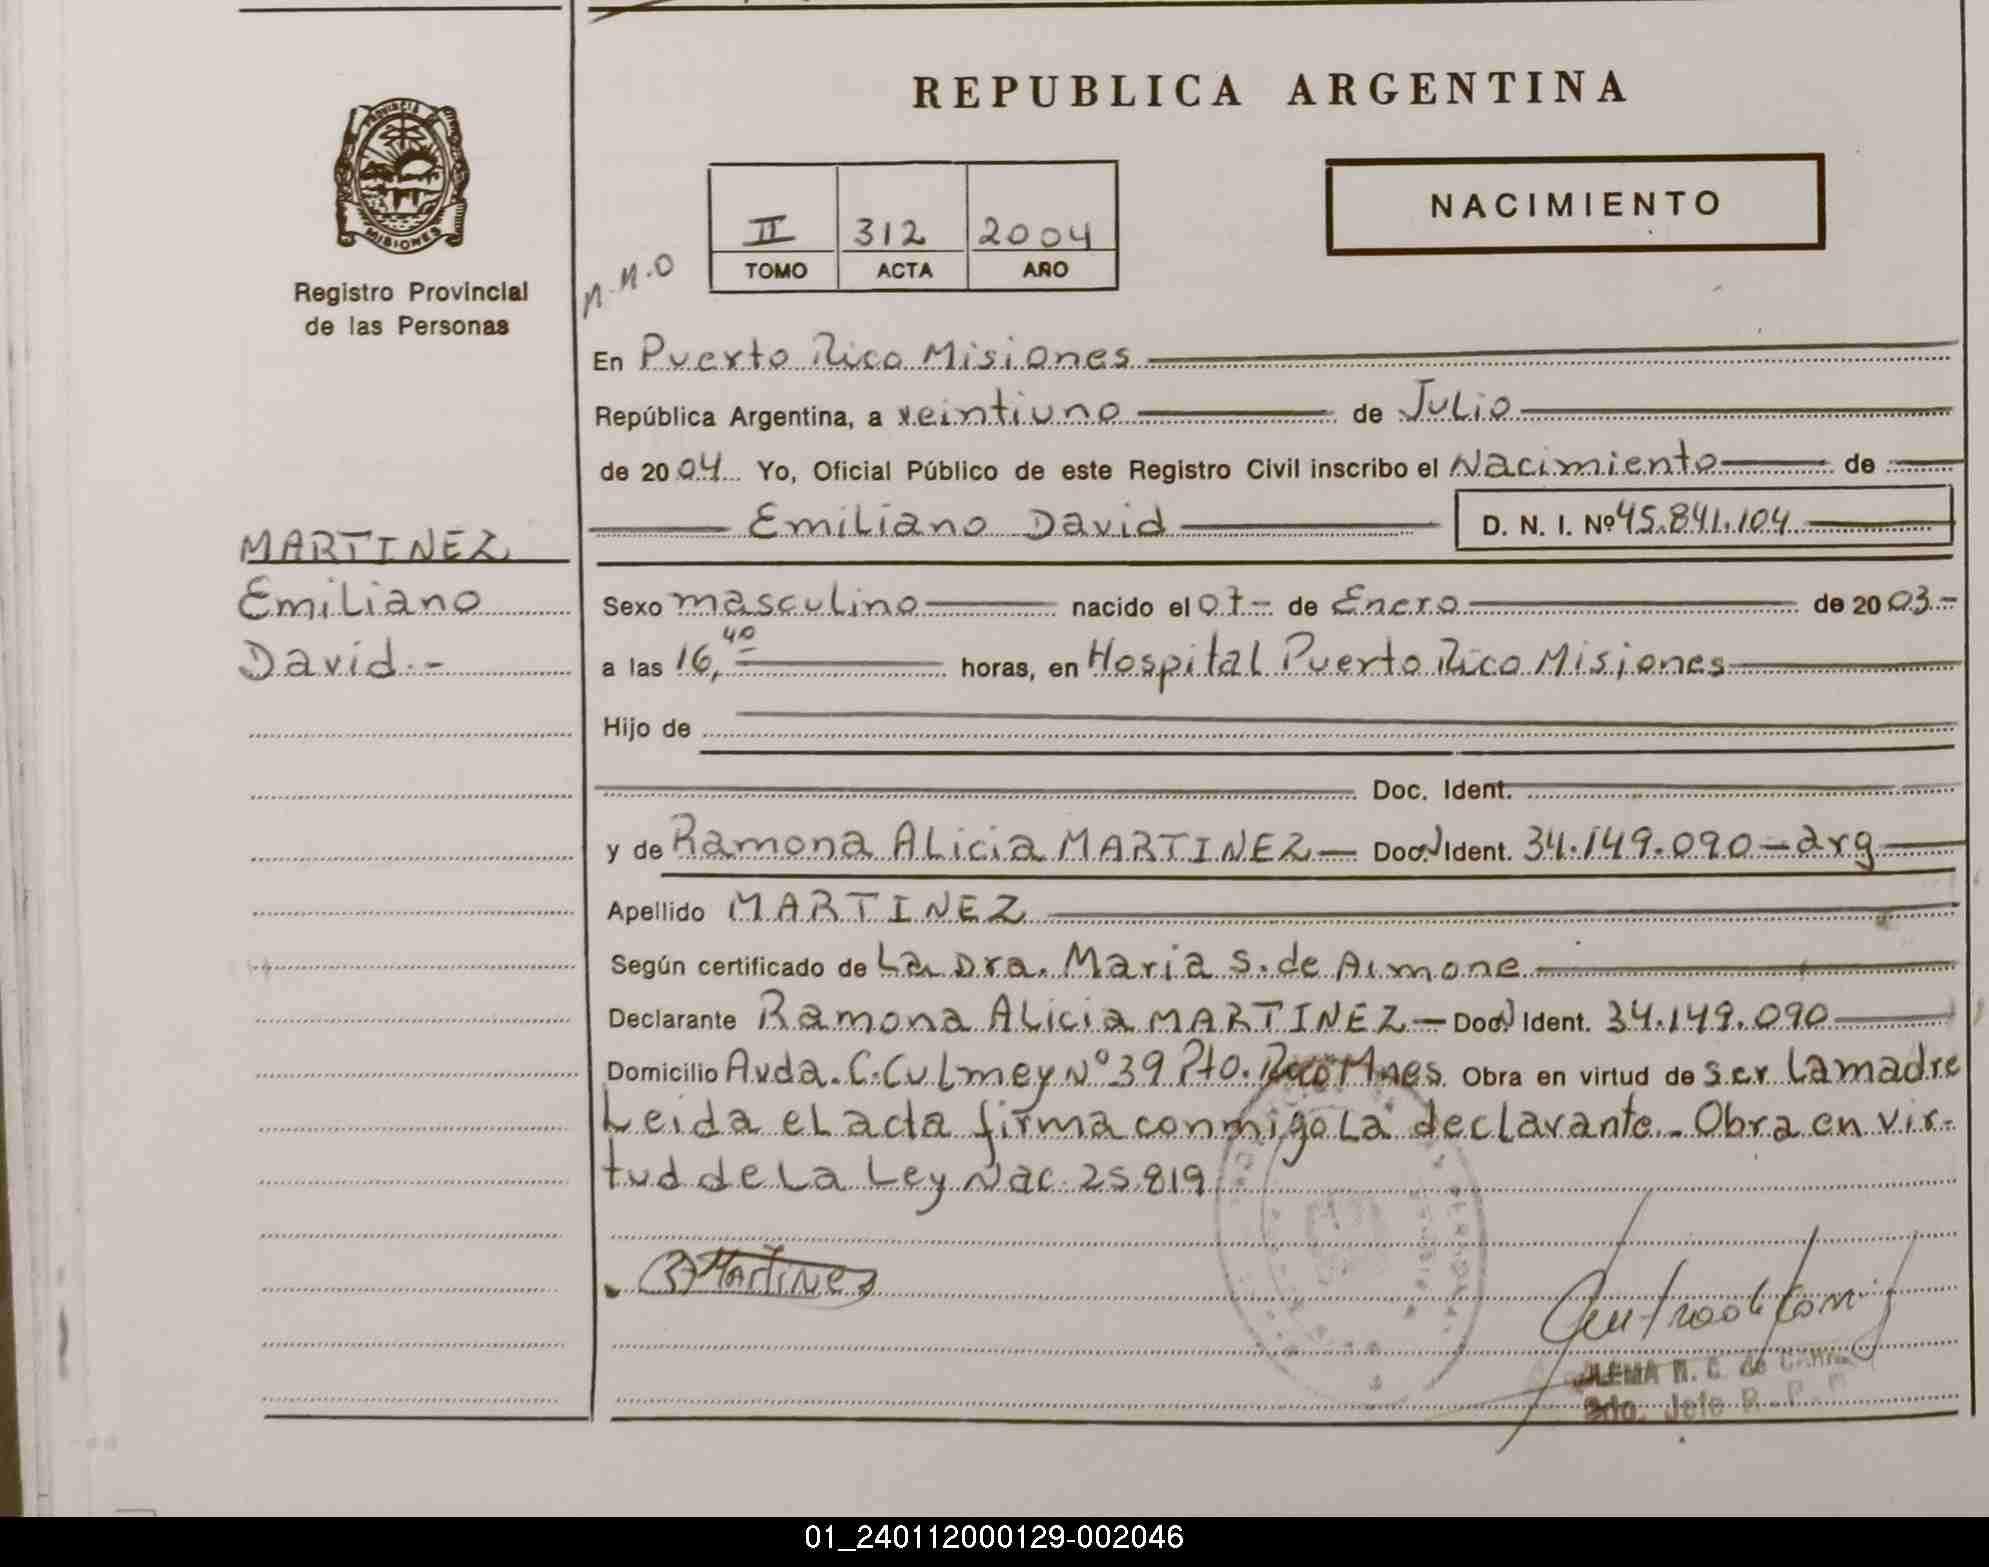 REPUBLICA ARGENTINA
PROVINCIA DE
MISIONES
Registro Provincial
de las Personas
NACIMIENTO
II 312 2004
TOMO ACTA AÑO
M.M.O
En Puerto Rico Misiones
República Argentina, a veintiuno de Julio
de 2004 Yo, Oficial Público de este Registro Civil inscribo el Nacimiento de
Emiliano David D. N. I. Nº 45.841.104
MARTINEZ
Emiliano
David.-
Sexo masculino nacido el 07- de Enero de 2003.-
a las 16,40 horas, en Hospital Puerto Rico Misiones
Hijo de
Doc. Ident.
y de Ramona Alicia MARTINEZ— Doc. Ident. 34.149.090—arg
Apellido MARTINEZ
Según certificado de La Dra. Maria S. de Aimone
Declarante Ramona Alicia MARTINEZ— Doc. Ident. 34.149.090
Domicilio Avda. C. Culmey Nº 39 Pto. Rico Mnes. Obra en virtud de ser la madre
Leida el acta firma conmigo La declarante.- Obra en vir-
tud de La Ley Nac. 25.819
R Martinez
N. C. de
2do. Jefe R. P.
01_240112000129-002046